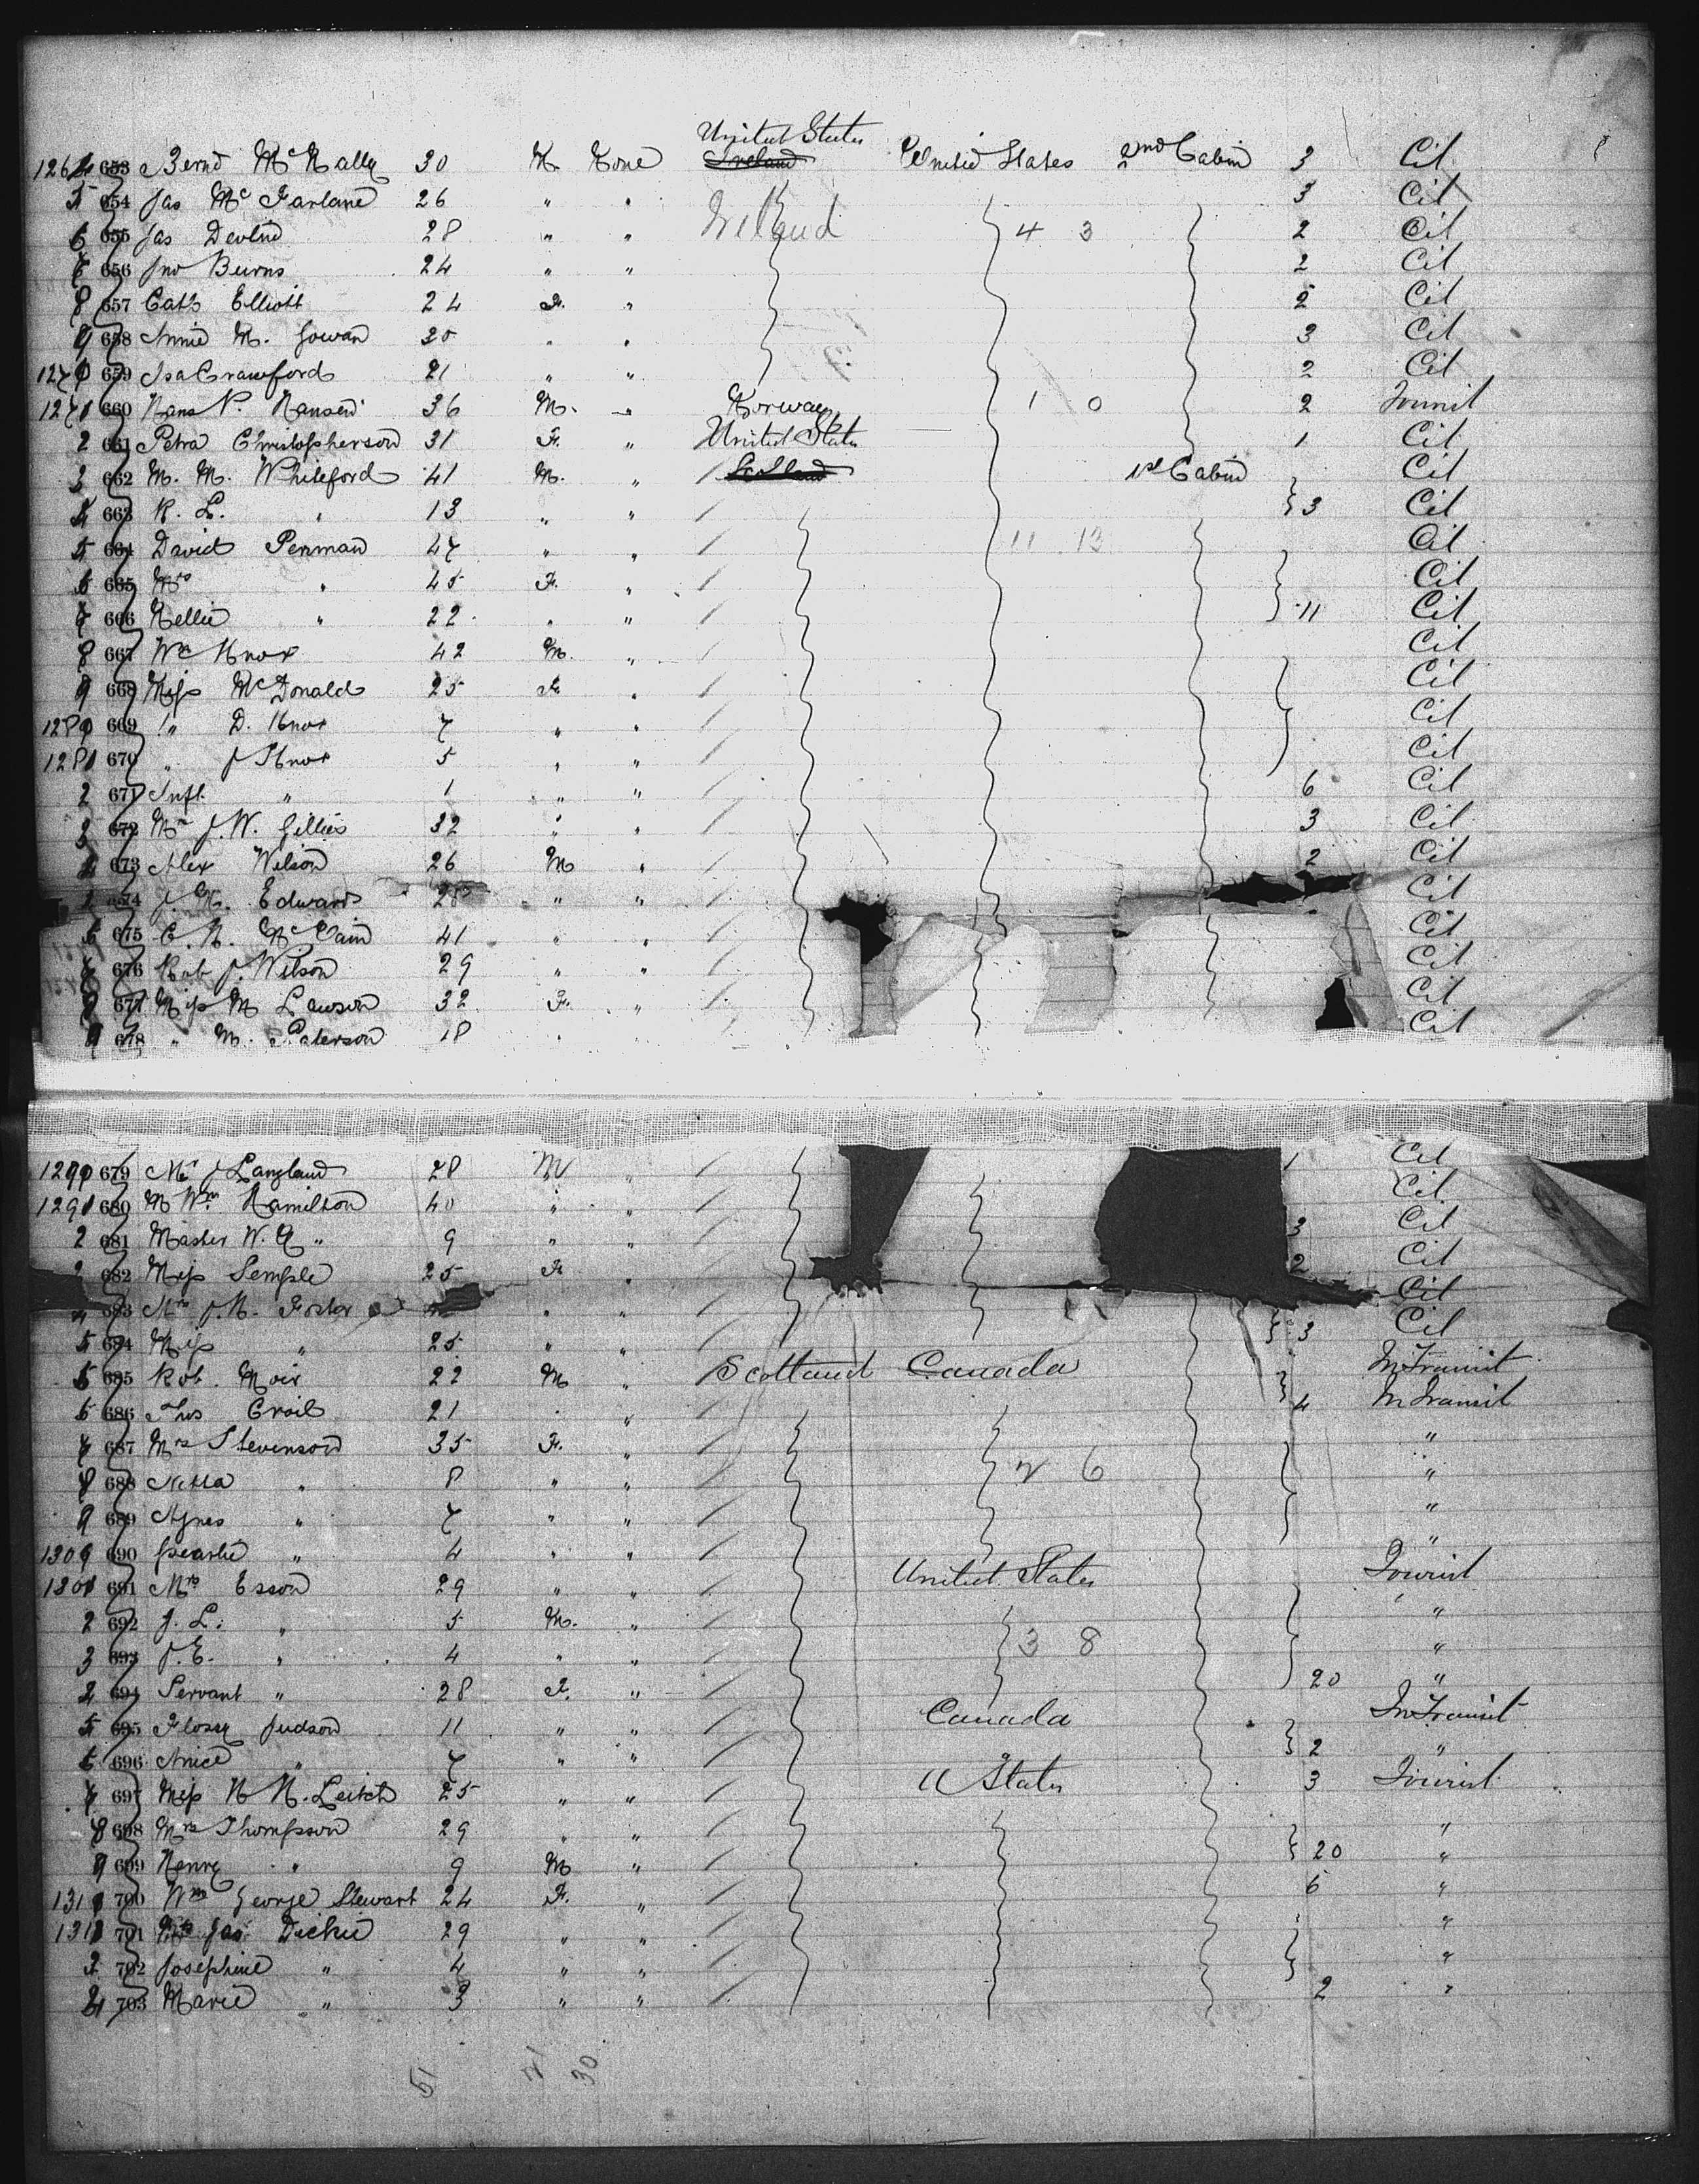 United States
1264 653 Bernd McNally 30 M. None Ireland United States 2nd Cabin 3 Cit
5 654 Jas McFarlane 26 " " 3 Cit
6 655 Jas Devlin 28 " " Ireland 4 3 2 Cit
7 656 Jno Burns 24 " " 2 Cit
8 657 Cath Elliott 24 F. " 2 Cit
9 658 Annie M. Gowan 20 " " 3 Cit
1270 659 Isa Crawford 21 " " 2 Cit
1271 660 Hans P. Hansen 36 M. " Norway 1 0 2 Tourist
2 661 Petra Christopherson 31 F. " United States 1 Cit
3 662 M. M. Whiteford 41 M. " Scotland 1st Cabin Cit
4 663 R. L. " 13 " " 3 Cit
5 664 David Penman 47 " " 11 13 Cit
6 665 Mrs " 45 F. " Cit
7 666 Nellie " 22 " " 11 Cit
8 667 Wm Knox 42 M. " Cit
9 668 Miss McDonald 25 F. " Cit
1280 669 " D. Knox 7 " " Cit
1281 670 " J Knox 5 " " Cit
2 671 Inft. " 1 " " 6 Cit
3 672 Mrs J. W. Gillies 32 " " 3 Cit
4 673 Alex Wilson 26 M " 2 Cit
674 J. M. Edwards 28 " " Cit
6 675 C. N. McCain 41 " " Cit
676 Rob J. Wilson 29 " " Cit
8 677 Miss M Lawson 32 F. " Cit
9 678 " M. Paterson 18 " Cit
1290 679 Mr J Langland 28 M " 1 Cit
1291 680 M Wm Hamilton 40 " " Cit
2 681 Master W. A " 9 " " 3 Cit
682 Miss Semple 25 F. " 2 Cit
4 683 Mrs J. M. Foster " " Cit
5 684 Miss " 25 " " 3 Cit
5 685 Rob. Moir 22 M " Scotland Canada In Transit
6 686 Thos Croil 21 " " 4 In Transit
7 687 Mrs Stevenson 35 F. " "
8 688 Netta " 8 " " 2 6 "
9 689 Agnes " 7 " " "
1300 690 Pearlie " 4 " " "
1301 691 Mrs Esson 29 " " United States Tourist
2 692 J. L. " 5 M. " "
3 693 J. E. " 4 " " 3 8 "
4 694 Servant " 28 F. " 20 "
5 695 Flossy Judson 11 " " Canada In Transit
6 696 Anice " 7 " " 2 "
7 697 Miss N M. Leitch 25 " " U States 3 Tourist
8 698 Mrs Thompson 29 " " "
9 699 Henry " 9 M " 20 "
1310 700 Wm George Stewart 24 F. " 6 "
1311 701 Mrs Jas Dickie 29 " " "
2 702 Josephine " 4 " " "
703 Marie " 3 " " 2 "
51 21 30